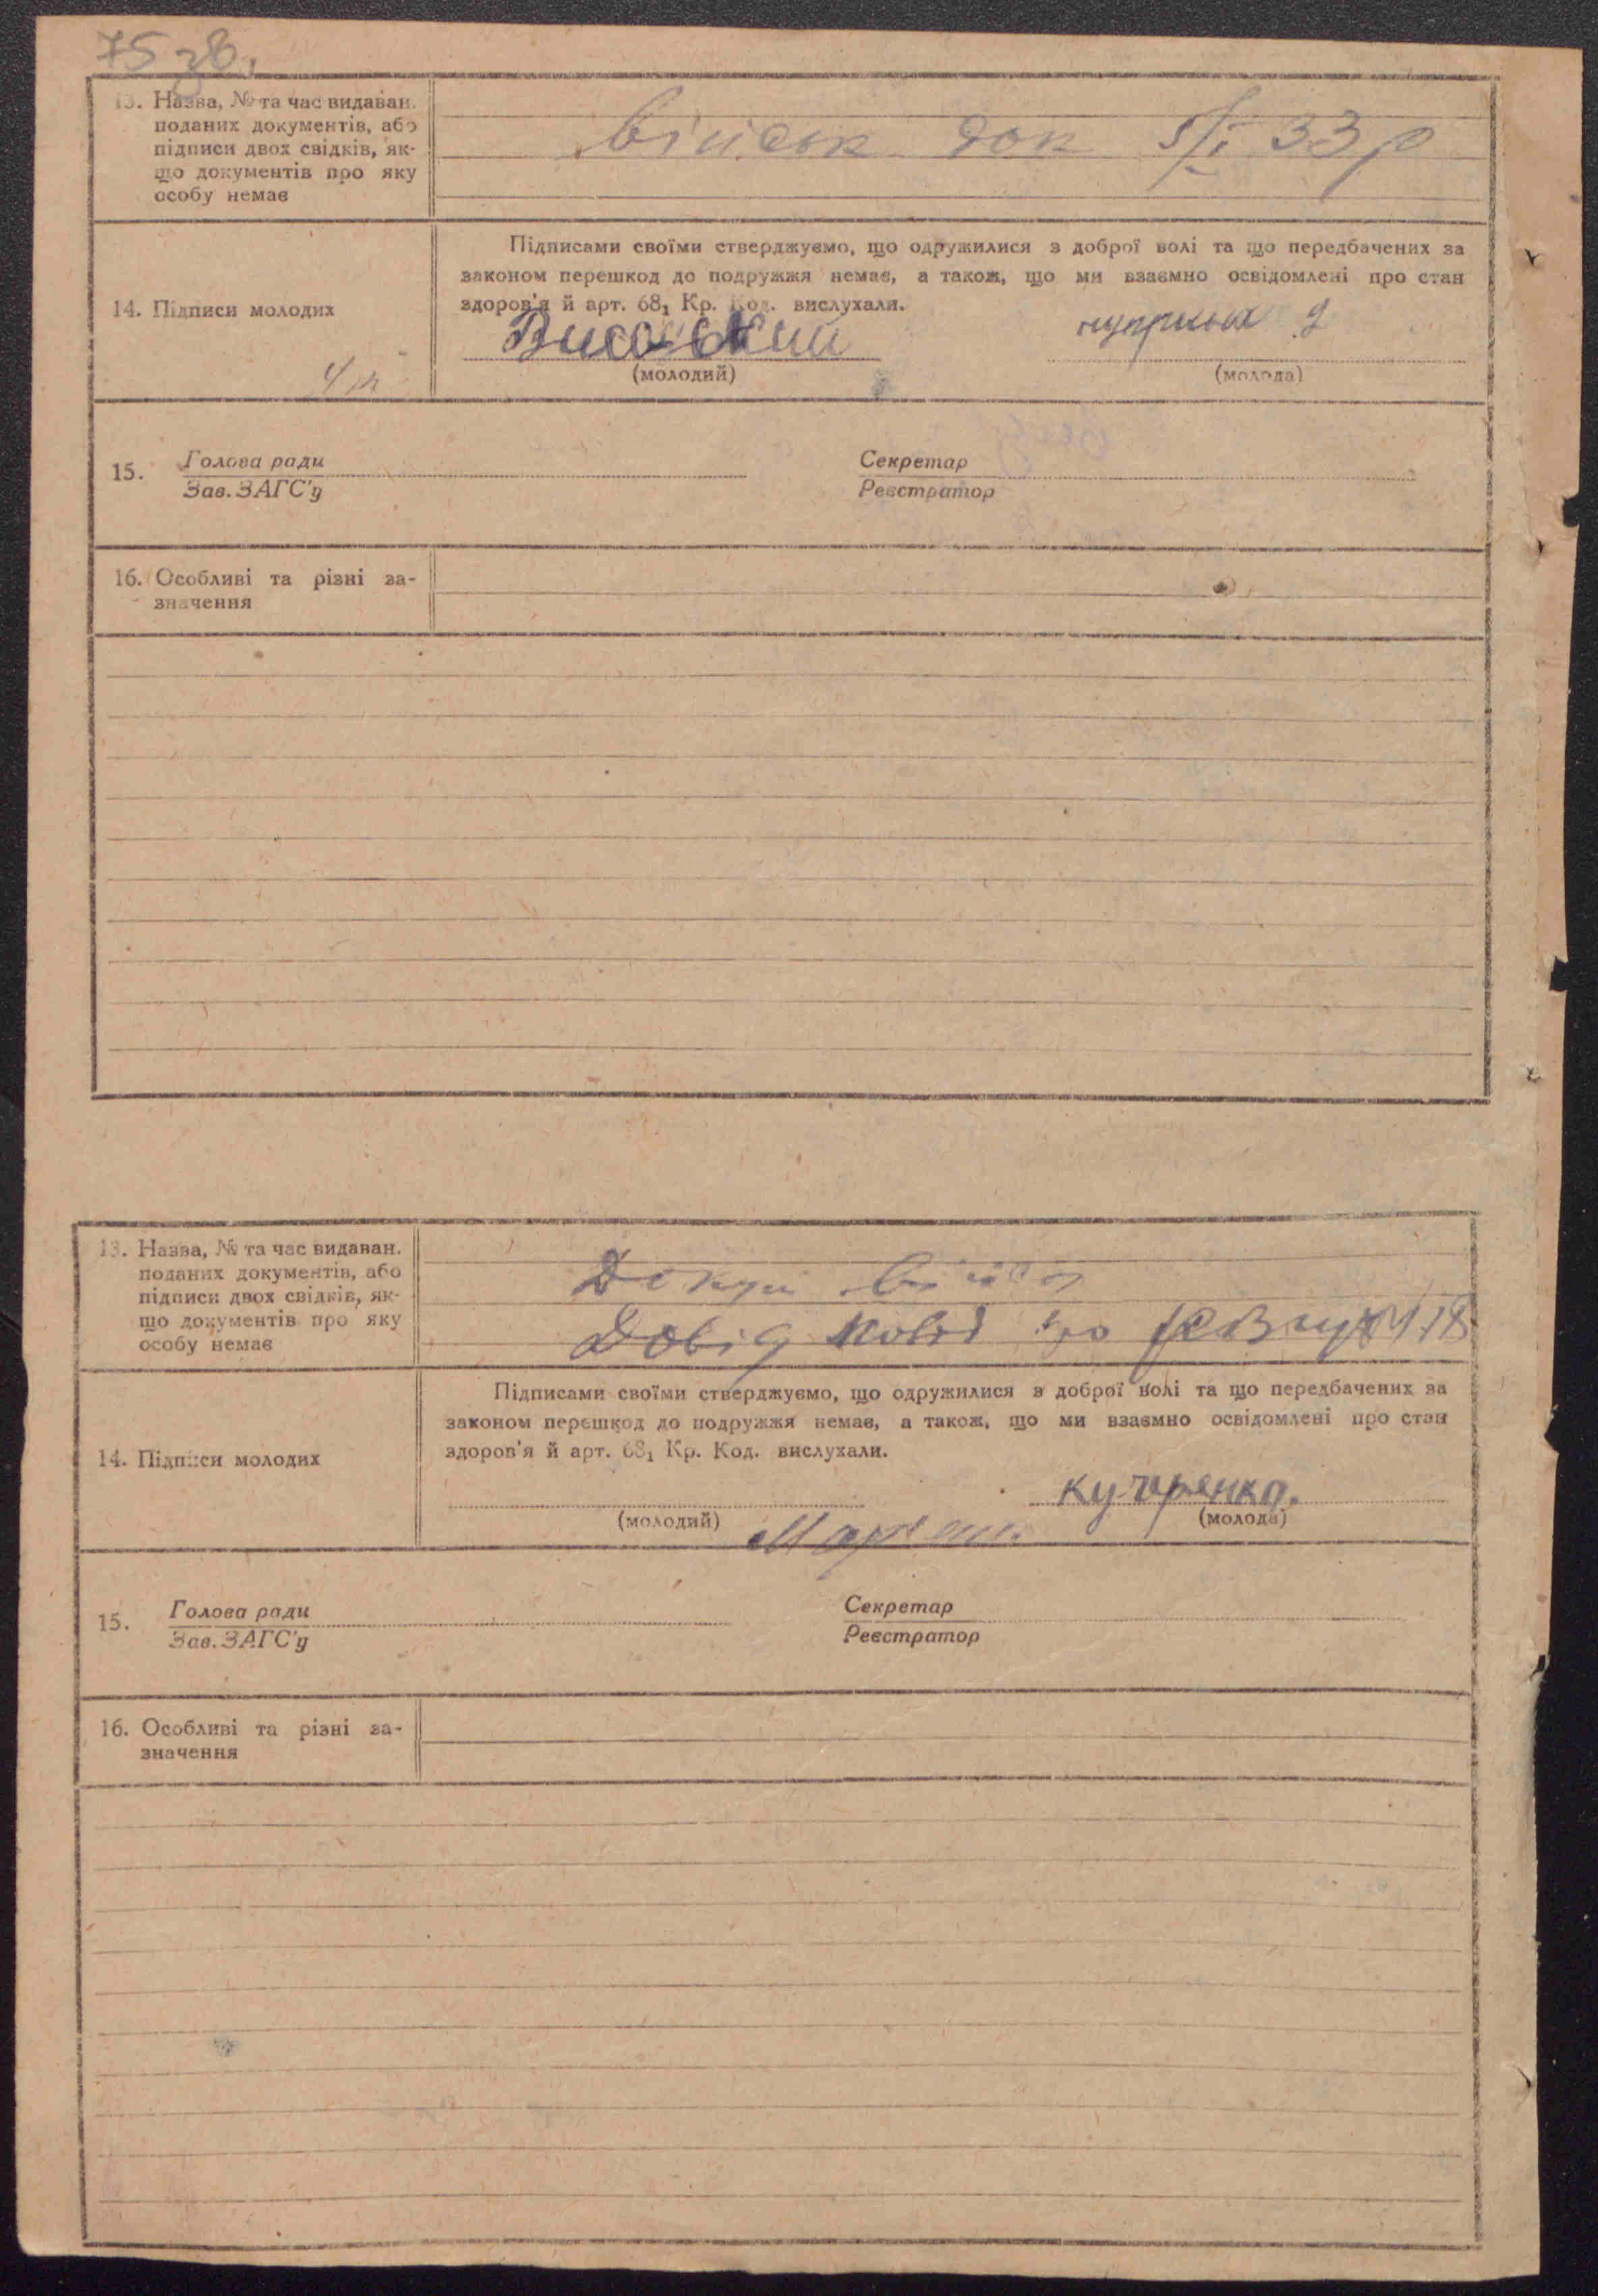 75 зв.
13. Назва, № та час видаван.
поданих документів, або
підписи двох свідків, як-
що документів про яку
особу немає
військ док 5/I 33 р
14. Підписи молодих
Підписами своїми стверджуємо, що одружилися з доброї волі та що передбачених за
законом перешкод до подружжя немає, а також, що ми взаємно освідомлені про стан
здоров'я й арт. 68₁ Кр. Код. вислухали.
(молодий)
(молода)
15. Голова ради
Зав. ЗАГС'у
Секретар
Реєстратор
16. Особливі та різні за-
значення
13. Назва, № та час видаван.
поданих документів, або
підписи двох свідків, як-
що документів про яку
особу немає
14. Підписи молодих
Підписами своїми стверджуємо, що одружилися з доброї волі та що передбачених за
законом перешкод до подружжя немає, а також, що ми взаємно освідомлені про стан
здоров'я й арт. 68₁ Кр. Код. вислухали.
кучеренко.
(молодий)
(молода)
15. Голова ради
Зав. ЗАГС'у
Секретар
Реєстратор
16. Особливі та різні за-
значення